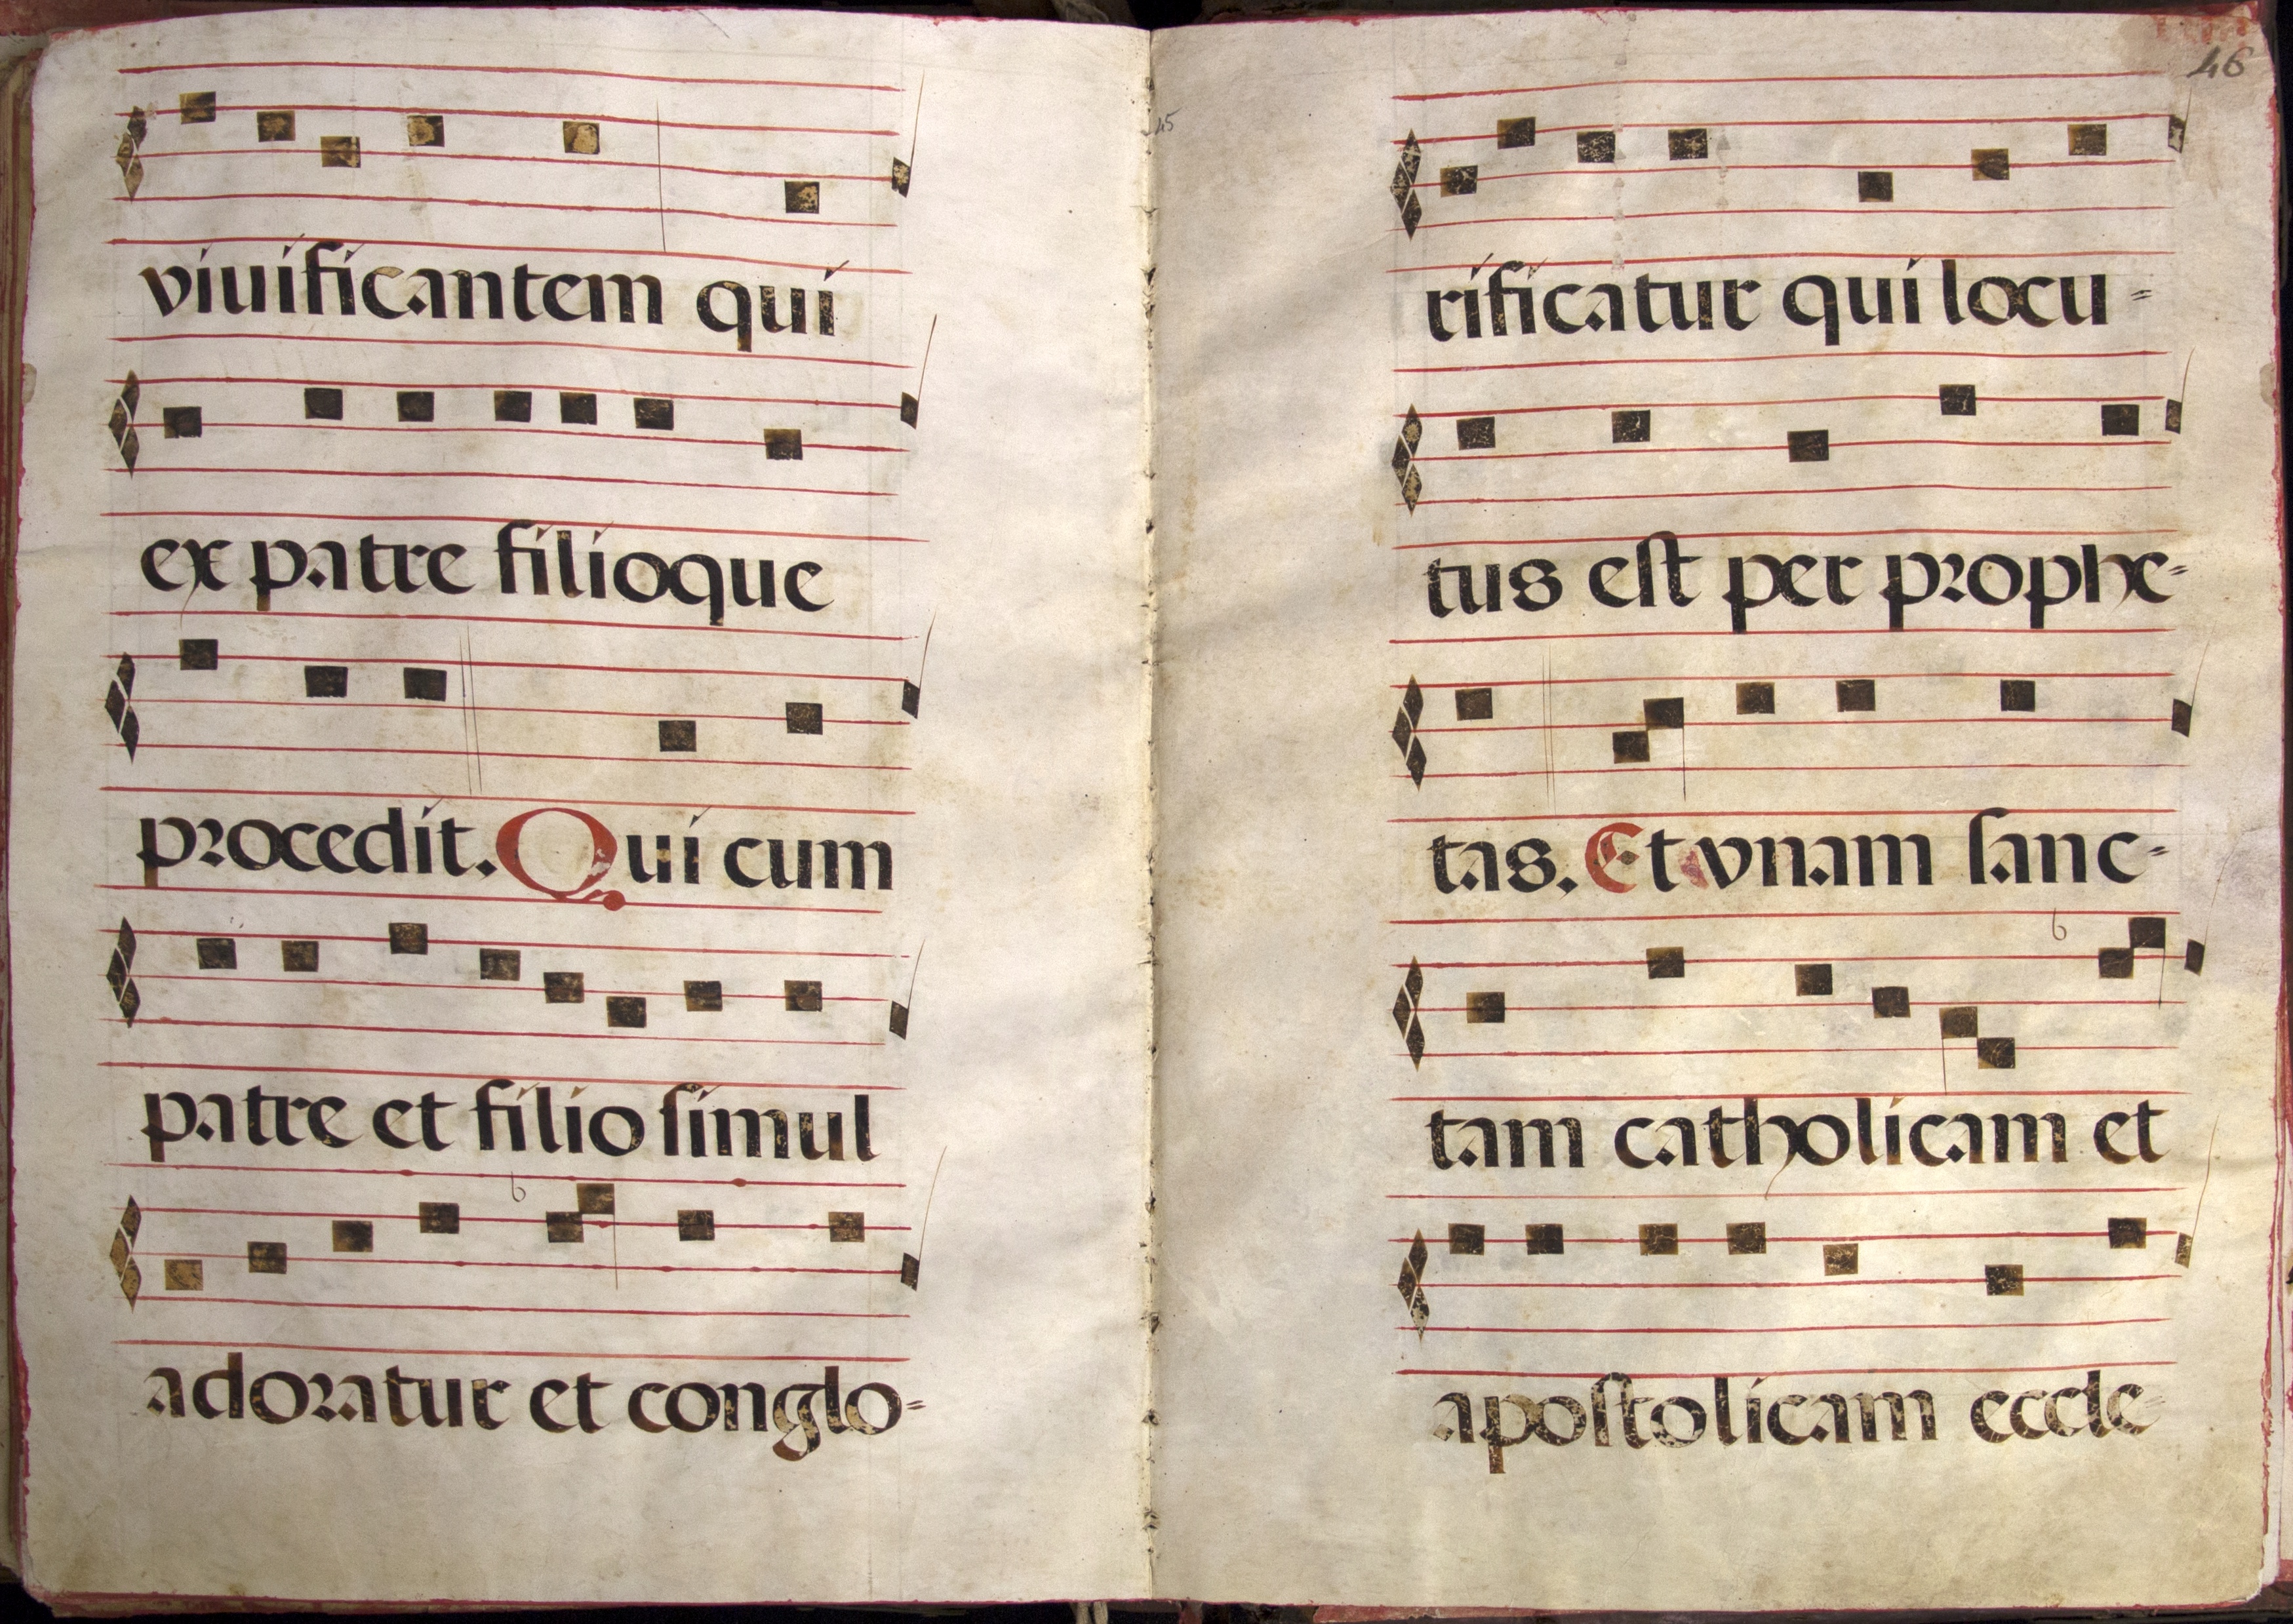 viuificantem qui
ex patre filioque
procedit. Qui cum
patre et filio simul
adoratur et conglo=
46
rificatur qui locu=
tus est per prophe=
tas. Et vnam sanc=
tam catholicam et
apostolicam eccle=